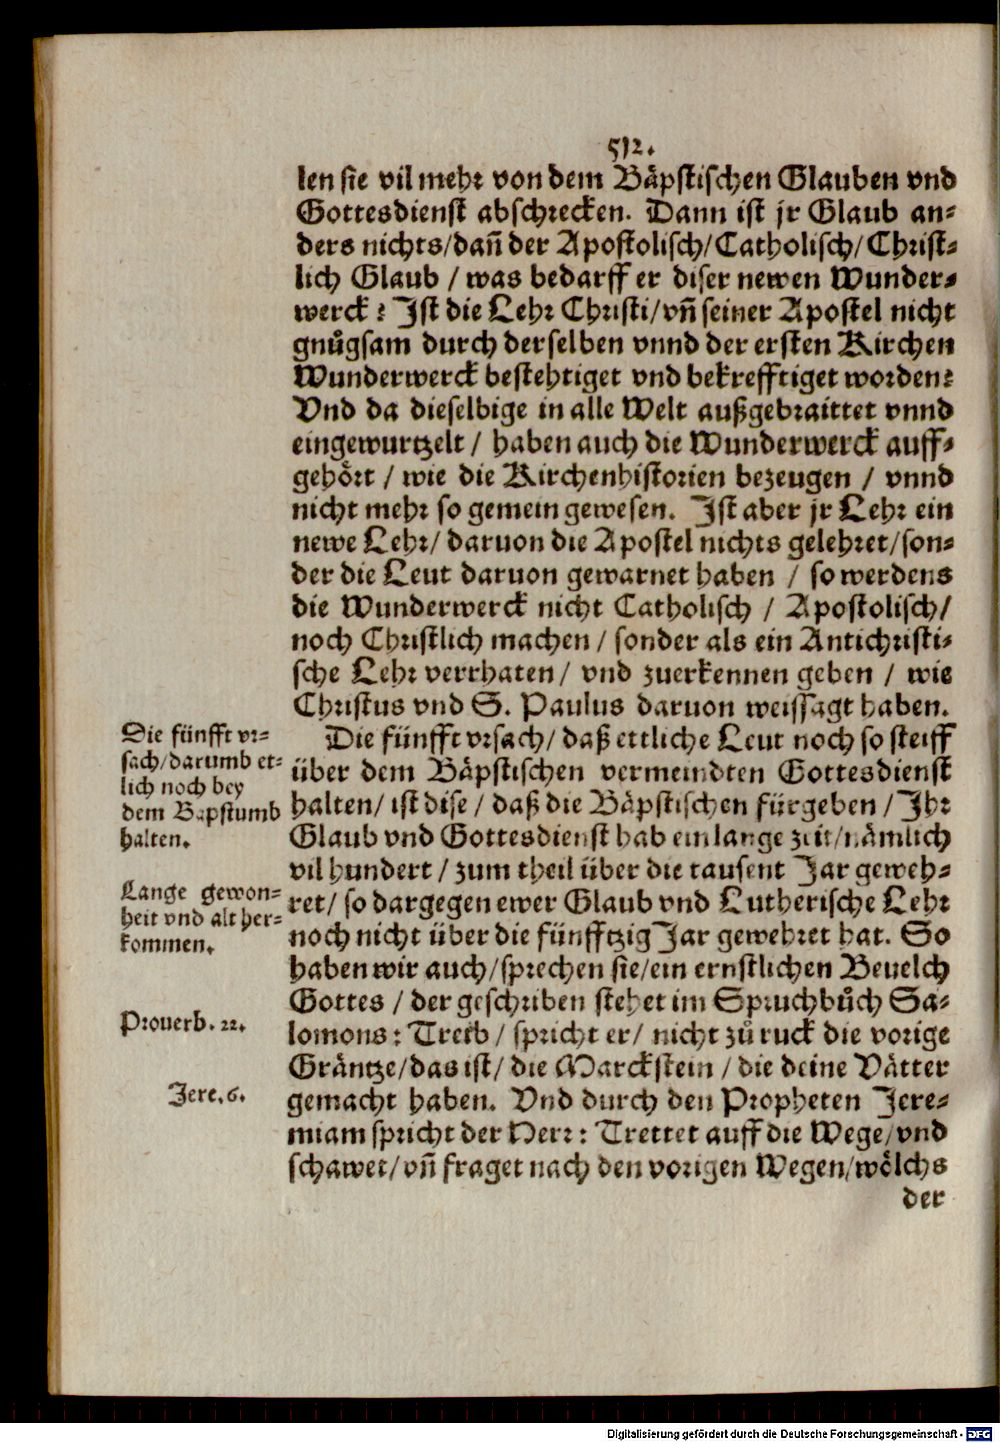 512.
len sie vil mehr von dem Bäpstischen Glauben vnd
Gottesdienst abschrecken. Dann ist jr Glaub an-
ders nichts/dañ der Apostolisch/Catholisch/Christ-
lich Glaub / was bedarff er diser newen Wunder-
werck? Ist die Lehr Christi/vñ seiner Apostel nicht
gnůgsam durch derselben vnnd der ersten Kirchen
Wunderwerck bestehtiget vnd bekrefftiget worden?
Vnd da dieselbige in alle Welt außgebraittet vnnd
eingewurtzelt / haben auch die Wunderwerck auff-
gehört / wie die Kirchenhistorien bezeugen / vnnd
nicht mehr so gemein gewesen. Ist aber jr Lehr ein
newe Lehr/ daruon die Apostel nichts gelehret/son-
der die Leut daruon gewarnet haben / so werdens
die Wunderwerck nicht Catholisch / Apostolisch/
noch Christlich machen / sonder als ein Antichristi-
sche Lehr verrhaten/ vnd zuerkennen geben / wie
Christus vnd S. Paulus daruon weissagt haben.
Die fünfft vrsach/ daß ettliche Leut noch so steiff
über dem Bäpstischen vermeindten Gottesdienst
halten/ ist dise / daß die Bäpstischen fürgeben / Ihr
Glaub vnd Gottesdienst hab ein lange zeit/nämlich
vil hundert / zum theil über die tausent Jar geweh-
ret/ so dargegen ewer Glaub vnd Lutherische Lehr
noch nicht über die fünfftzig Jar gewehret hat. So
haben wir auch/sprechen sie/ein ernstlichen Beuelch
Gottes / der geschriben stehet im Spruchbůch Sa-
lomons: Treib / spricht er/ nicht zů ruck die vorige
Gräntze/das ist/ die Marckstein / die deine Vätter
gemacht haben. Vnd durch den Propheten Jere-
miam spricht der Herr: Trettet auff die Wege/vnd
schawet/vñ fraget nach den vorigen Wegen/wölchs
der
Die fünfft vr-
sach/darumb et-
lich noch bey
dem Bapstumb
halten.
Lange gewon-
heit vnd alt her-
kommen.
Prouerb. 22.
Jere. 6.
Digitalisierung gefördert durch die Deutsche Forschungsgemeinschaft - DFG